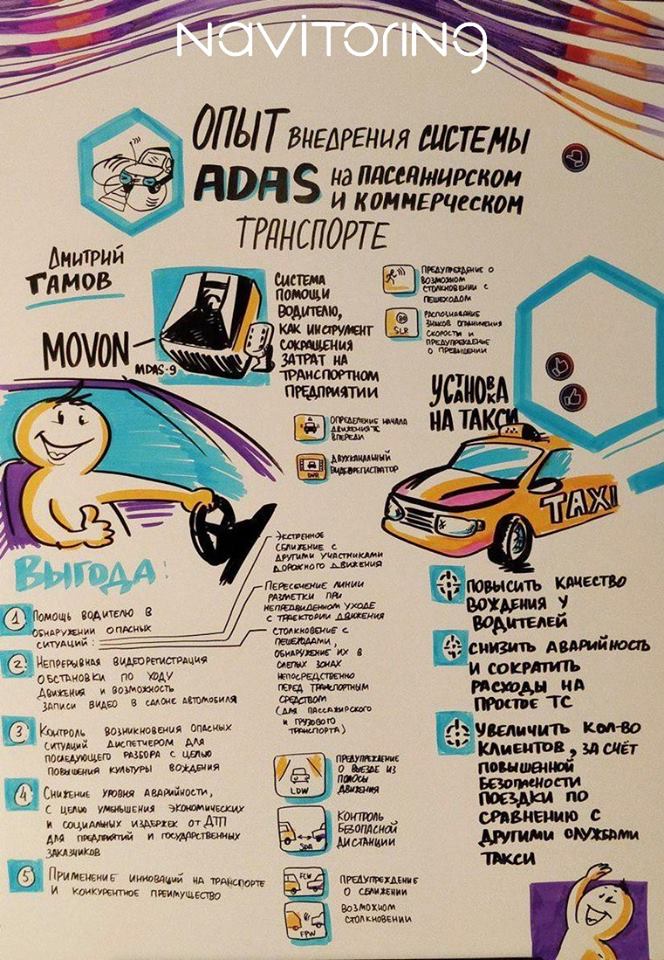 NaviToring
ОПЫТ ВНЕДРЕНИЯ СИСТЕМЫ
ADAS НА ПАССАЖИРСКОМ
И КОММЕРЧЕСКОМ
ТРАНСПОРТЕ
Дмитрий
ТАМОВ
MOVON
MDAS-9
СИСТЕМА
ПОМОЩИ
ВОДИТЕЛЮ,
КАК ИНСТРУМЕНТ
СОКРАЩЕНИЯ
ЗАТРАТ НА
ТРАНСПОРТНОМ
ПРЕДПРИЯТИИ
ПРЕДУПРЕЖДЕНИЕ О
ВОЗМОЖНОМ
СТОЛКНОВЕНИИ С
ПЕШЕХОДОМ
SLR
РАСПОЗНАВАНИЕ
ЗНАКОВ ОГРАНИЧЕНИЯ
СКОРОСТИ И
ПРЕДУПРЕЖДЕНИЕ
О ПРЕВЫШЕНИИ
ОПРЕДЕЛЕНИЕ НАЧАЛА
ДВИЖЕНИЯ ТС
ВПЕРЕДИ
DVR
ДВУХКАНАЛЬНЫЙ
ВИДЕОРЕГИСТРАТОР
УСТАНОВКА
НА ТАКСИ
TAXI
ВЫГОДА:
1 ПОМОЩЬ ВОДИТЕЛЮ В
ОБНАРУЖЕНИИ ОПАСНЫХ
СИТУАЦИЙ:
ЭКСТРЕННОЕ
СБЛИЖЕНИЕ С
ДРУГИМИ УЧАСТНИКАМИ
ДОРОЖНОГО ДВИЖЕНИЯ
ПЕРЕСЕЧЕНИЕ ЛИНИИ
РАЗМЕТКИ ПРИ
НЕПРЕДВИДЕННОМ УХОДЕ
С ТРАЕКТОРИИ ДВИЖЕНИЯ
СТОЛКНОВЕНИЕ С
ПЕШЕХОДАМИ,
ОБНАРУЖЕНИЕ ИХ В
СЛЕПЫХ ЗОНАХ
НЕПОСРЕДСТВЕННО
ПЕРЕД ТРАНСПОРТНЫМ
СРЕДСТВОМ
(ДЛЯ ПАССАЖИРСКОГО
И ГРУЗОВОГО
ТРАНСПОРТА)
2 НЕПРЕРЫВНАЯ ВИДЕОРЕГИСТРАЦИЯ
ОБСТАНОВКИ ПО ХОДУ
ДВИЖЕНИЯ И ВОЗМОЖНОСТЬ
ЗАПИСИ ВИДЕО В САЛОНЕ АВТОМОБИЛЯ
3 КОНТРОЛЬ ВОЗНИКНОВЕНИЯ ОПАСНЫХ
СИТУАЦИЙ ДИСПЕТЧЕРОМ ДЛЯ
ПОСЛЕДУЮЩЕГО РАЗБОРА С ЦЕЛЬЮ
ПОВЫШЕНИЯ КУЛЬТУРЫ ВОЖДЕНИЯ
4 СНИЖЕНИЕ УРОВНЯ АВАРИЙНОСТИ,
С ЦЕЛЬЮ УМЕНЬШЕНИЯ ЭКОНОМИЧЕСКИХ
И СОЦИАЛЬНЫХ ИЗДЕРЖЕК ОТ ДТП
ДЛЯ ПРЕДПРИЯТИЙ И ГОСУДАРСТВЕННЫХ
ЗАКАЗЧИКОВ
5 ПРИМЕНЕНИЕ ИННОВАЦИЙ НА ТРАНСПОРТЕ
И КОНКУРЕНТНОЕ ПРЕИМУЩЕСТВО
LDW
ПРЕДУПРЕЖДЕНИЕ
О ВЫЕЗДЕ ИЗ
ПОЛОСЫ
ДВИЖЕНИЯ
SDA
КОНТРОЛЬ
БЕЗОПАСНОЙ
ДИСТАНЦИИ
FCW
ПРЕДУПРЕЖДЕНИЕ
О СБЛИЖЕНИИ
FPW
ВОЗМОЖНОМ
СТОЛКНОВЕНИИ
ПОВЫСИТЬ КАЧЕСТВО
ВОЖДЕНИЯ У
ВОДИТЕЛЕЙ
СНИЗИТЬ АВАРИЙНОСТЬ
И СОКРАТИТЬ
РАСХОДЫ НА
ПРОСТОЕ ТС
УВЕЛИЧИТЬ КОЛ-ВО
КЛИЕНТОВ, ЗА СЧЁТ
ПОВЫШЕННОЙ
БЕЗОПАСНОСТИ
ПОЕЗДКИ ПО
СРАВНЕНИЮ С
ДРУГИМИ СЛУЖБАМИ
ТАКСИ